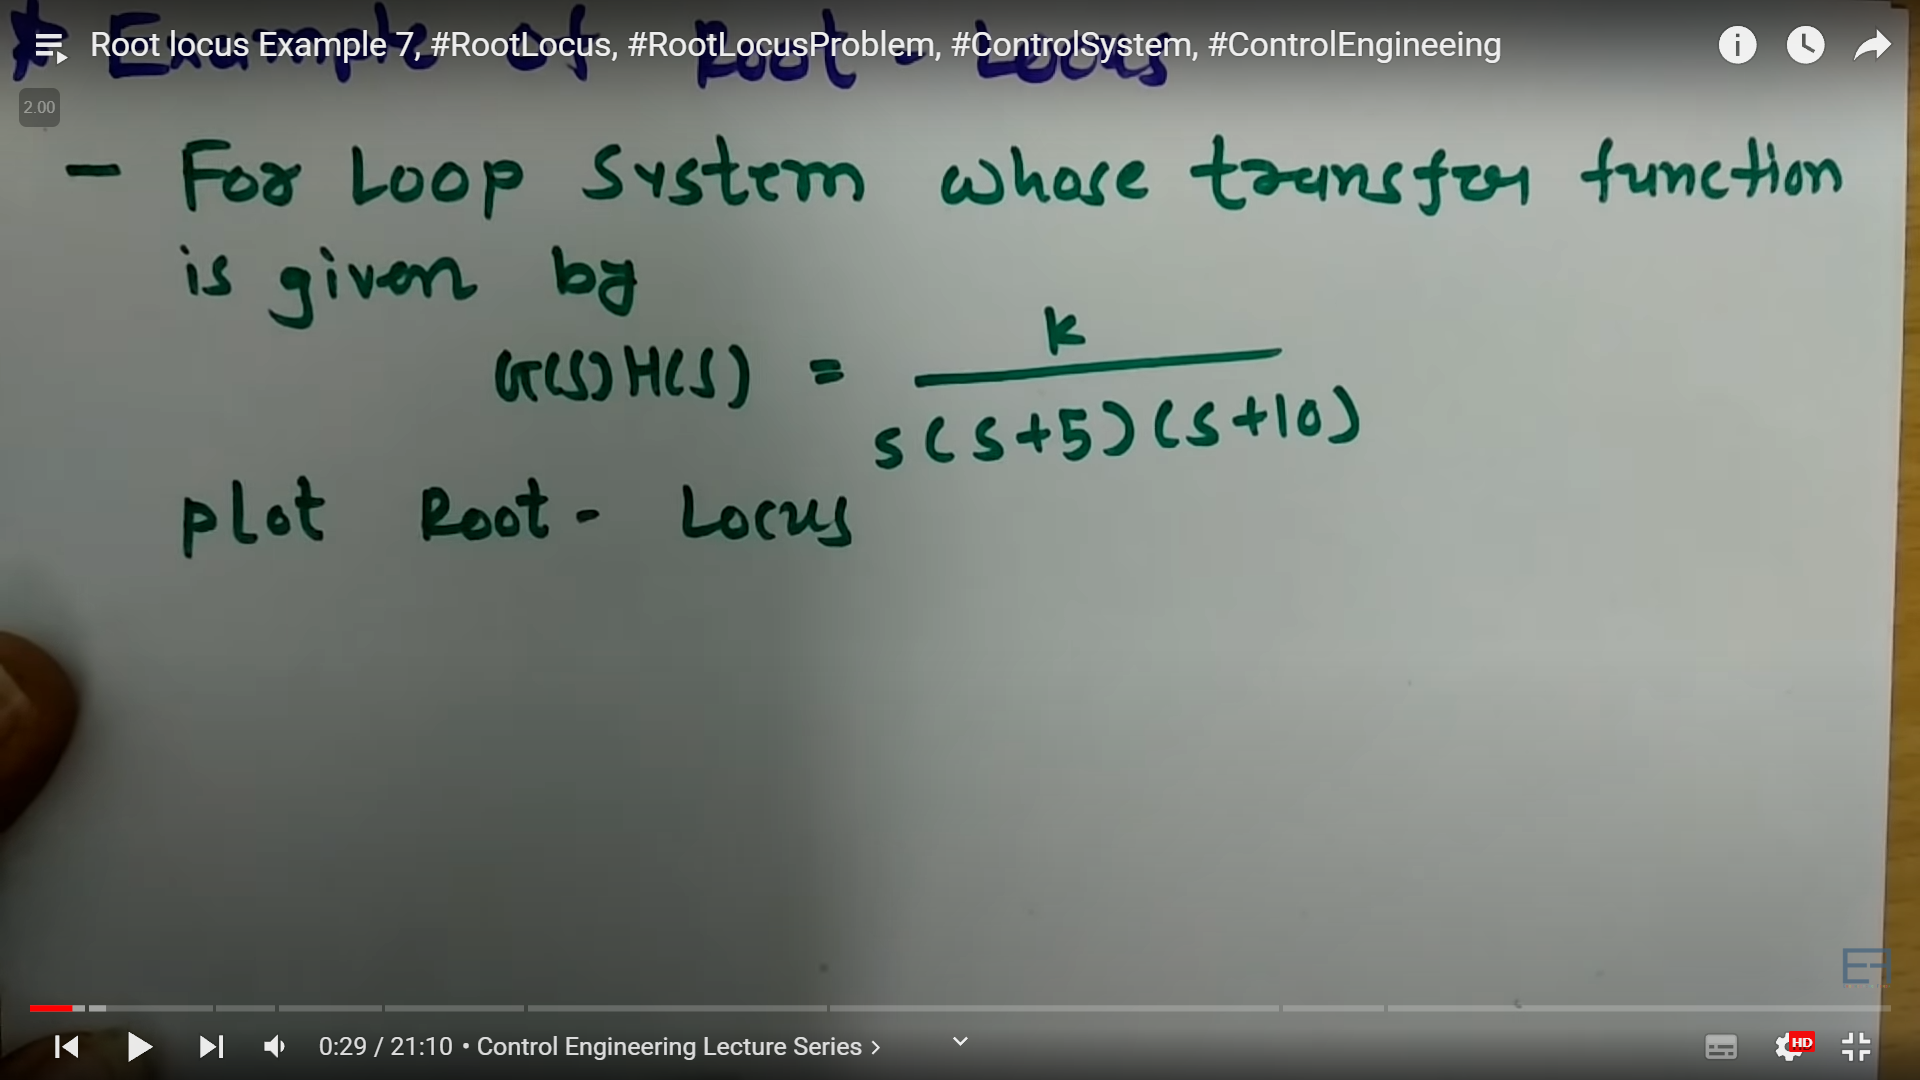 * Example of Root - Locus
Root locus Example 7, #RootLocus, #RootLocusProblem, #ControlSystem, #ControlEngineeing
2.00
- For Loop System whose transfer function
is given by
G(S)H(S) = K / S(S+5)(S+10)
plot Root - Locus
0:29 / 21:10 • Control Engineering Lecture Series >
HD